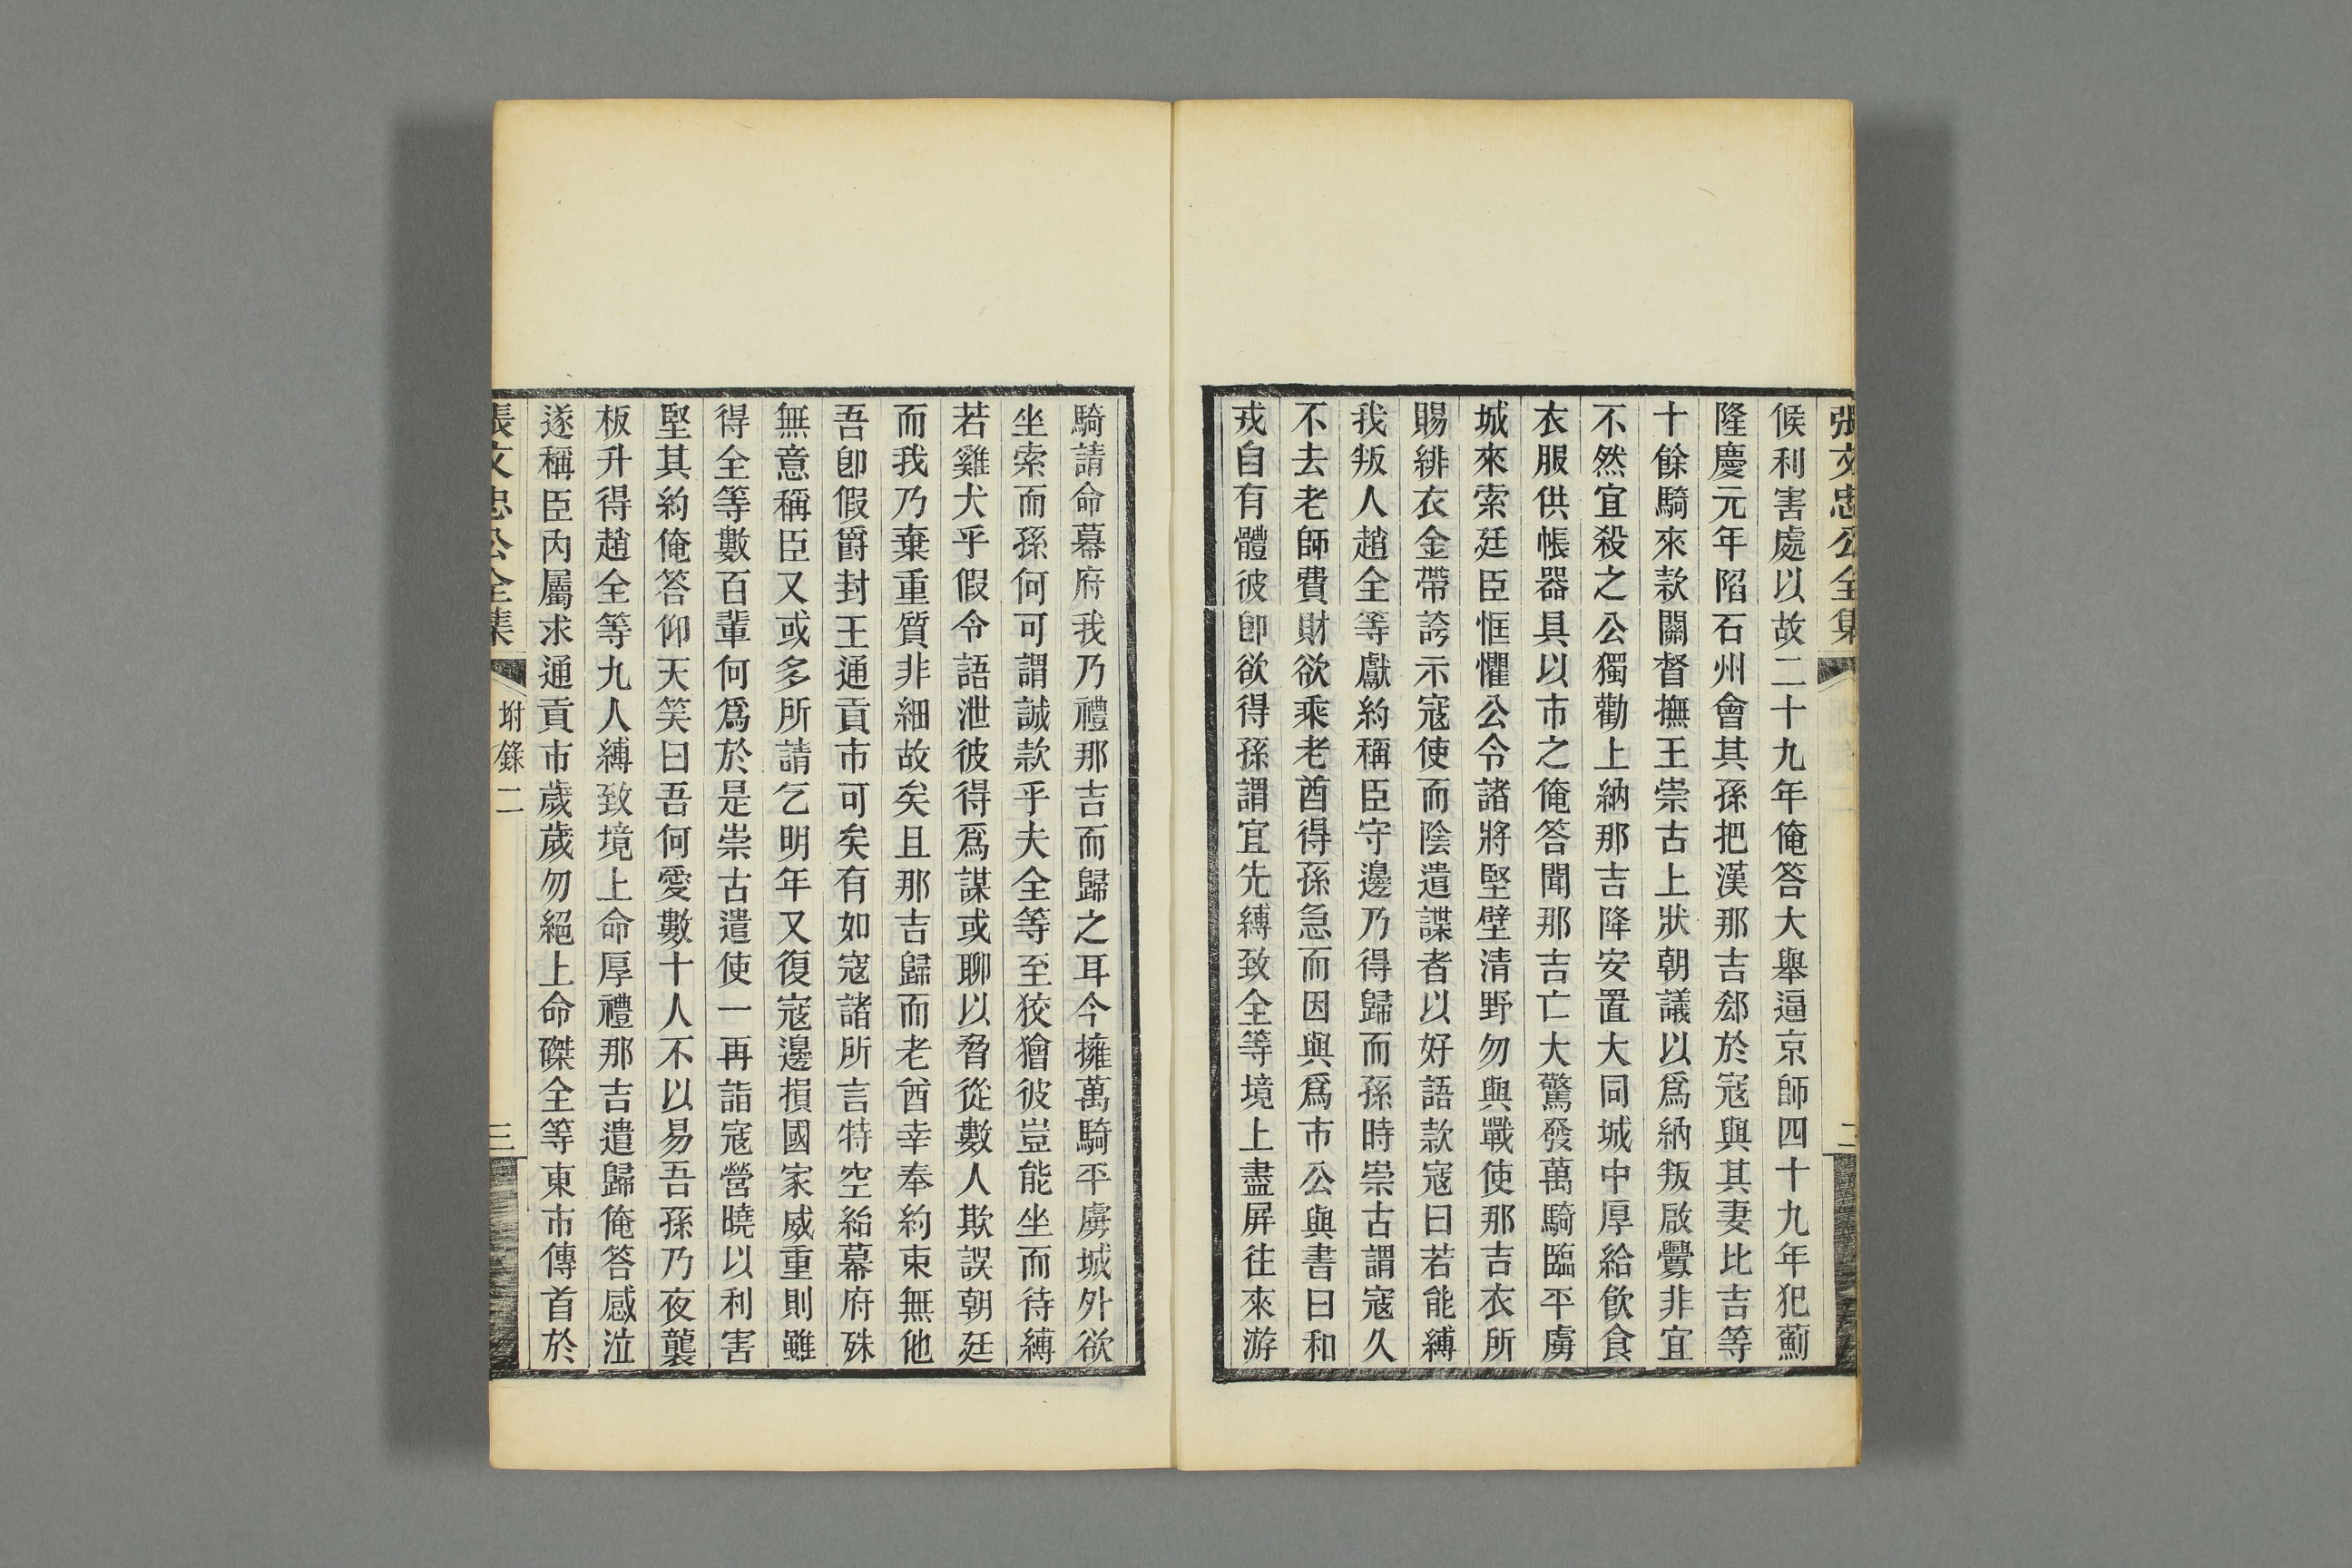 張文忠公全集
二
候利害處以故二十九年俺答大舉逼京師四十九年犯薊
隆慶元年陷石州會其孫把漢那吉郄於寇與其妻比吉等
十餘騎來款關督撫王崇古上狀朝議以爲納叛啟釁非宜
不然宜殺之公獨勸上納那吉降安置大同城中厚給飮食
衣服供帳器具以市之俺答聞那吉亡大驚發萬騎臨平虜
城來索廷臣恇懼公令諸將堅壁清野勿與戰使那吉衣所
賜緋衣金帶誇示寇使而陰遣諜者以好語款寇曰若能縛
我叛人趙全等獻約稱臣守邊乃得歸而孫時崇古謂寇久
不去老師費財欲乘老酋得孫急而因與爲市公與書曰和
戎自有體彼卽欲得孫謂宜先縛致全等境上盡屏往來游
騎請命幕府我乃禮那吉而歸之耳今擁萬騎平虜城外欲
坐索而孫何可謂誠款乎夫全等至狡獪彼豈能坐而待縛
若雞犬乎假令語泄彼得爲謀或聊以脅從數人欺誤朝廷
而我乃棄重質非細故矣且那吉歸而老酋幸奉約束無他
吾卽假爵封王通貢市可矣有如寇諸所言特空紿幕府殊
無意稱臣又或多所請乞明年又復寇邊損國家威重則雖
得全等數百輩何爲於是崇古遣使一再詣寇營曉以利害
堅其約俺答仰天笑曰吾何愛數十人不以易吾孫乃夜襲
板升得趙全等九人縛致境上命厚禮那吉遣歸俺答感泣
遂稱臣內屬求通貢市歲歲勿絕上命磔全等東市傳首於
張文忠公全集
坿錄二
三